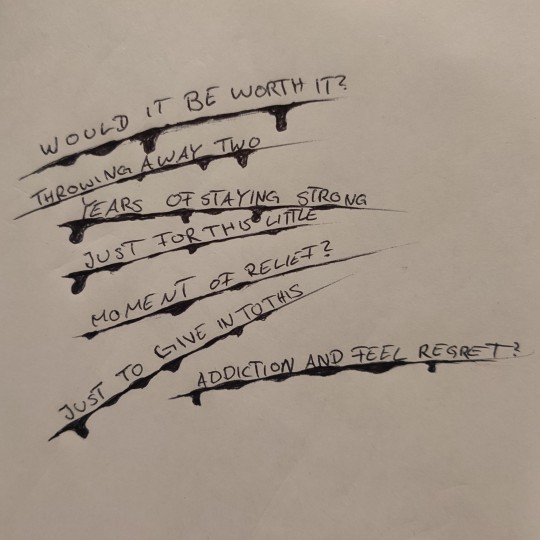 WOULD IT BE WORTH IT?
THROWING AWAY TWO
YEARS OF STAYING STRONG
JUST FOR THIS LITTLE
MOMENT OF RELIEF?
JUST TO GIVE IN TO THIS
ADDICTION AND FEEL REGRET?